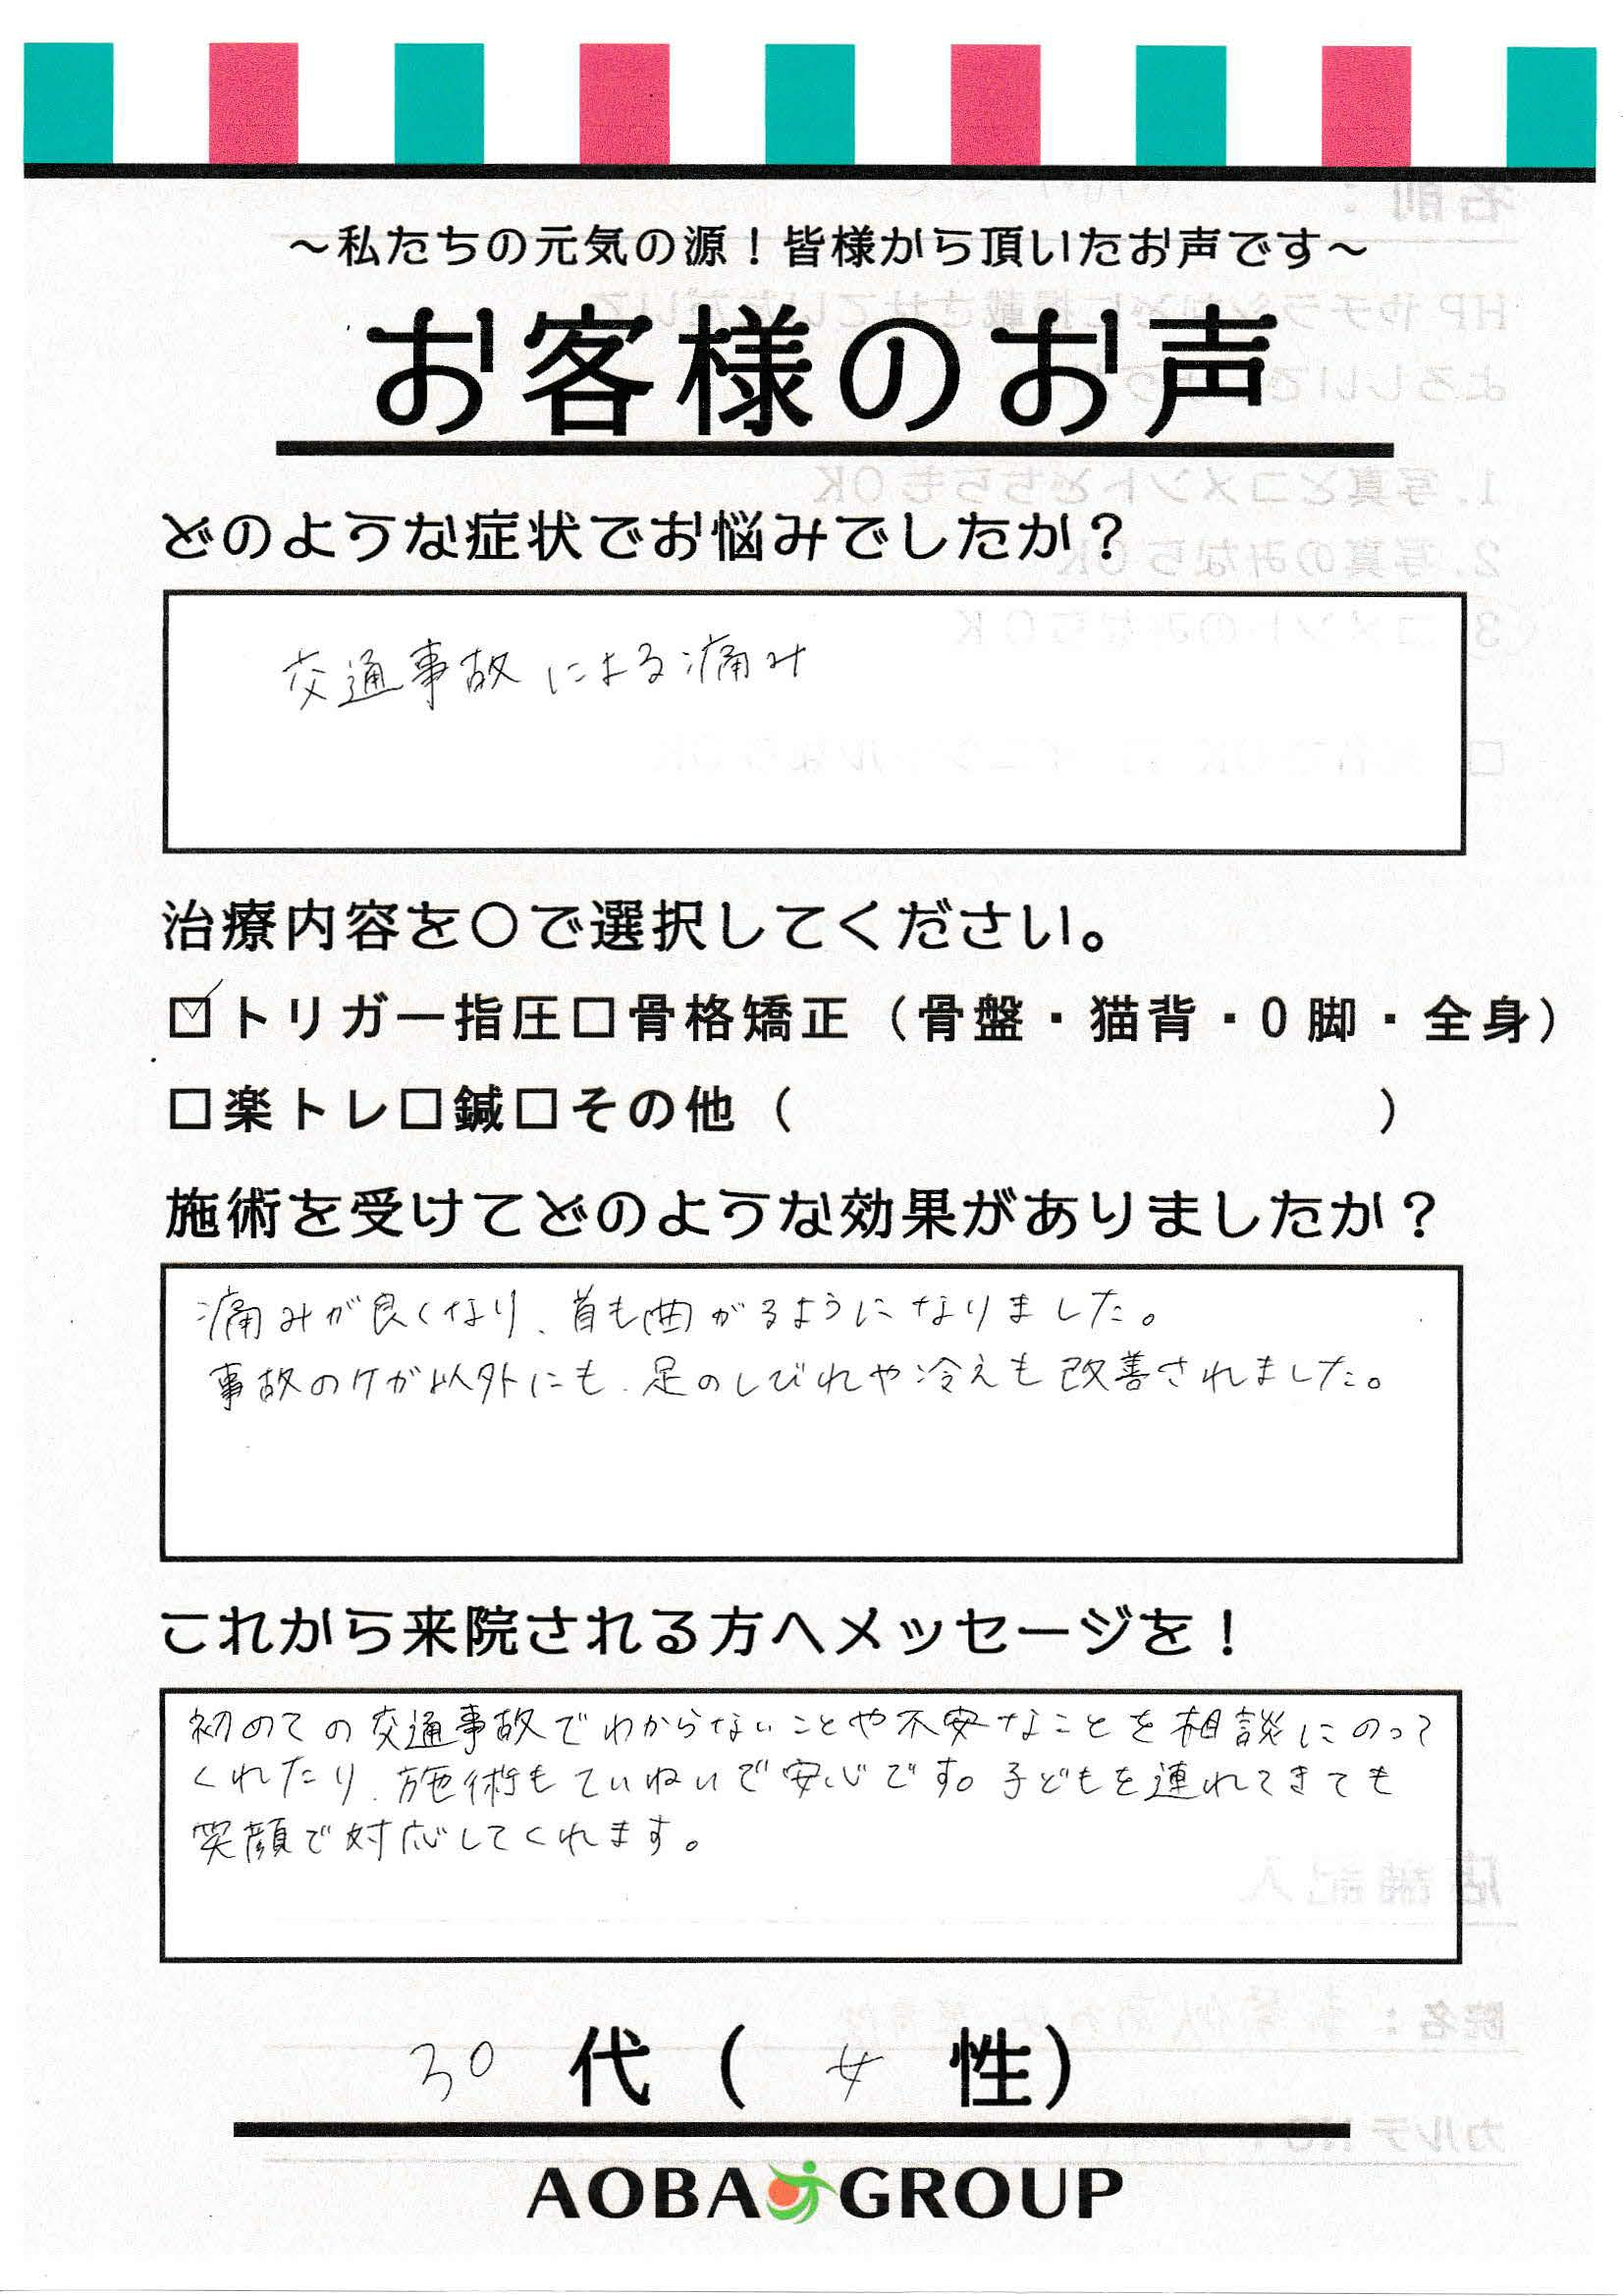 ～私たちの元気の源！皆様から頂いたお声です～
お客様のお声
どのような症状でお悩みでしたか？
交通事故による痛み
治療内容を〇で選択してください。
☑トリガー指圧□骨格矯正（骨盤・猫背・O脚・全身）
□楽トレ□鍼□その他（　　　　　　　　　　）
施術を受けてどのような効果がありましたか？
痛みが良くなり、首も曲がるようになりました。
事故のケガ以外にも、足のしびれや冷えも改善されました。
これから来院される方へメッセージを！
初めての交通事故でわからないことや不安なことを相談にのって
くれたり、施術もていねいで安心です。子どもを連れてきても
笑顔で対応してくれます。
30代（女性）
AOBA GROUP